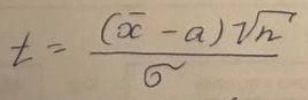 t = \frac{(\bar{x} - a)\sqrt{n}}{\sigma}